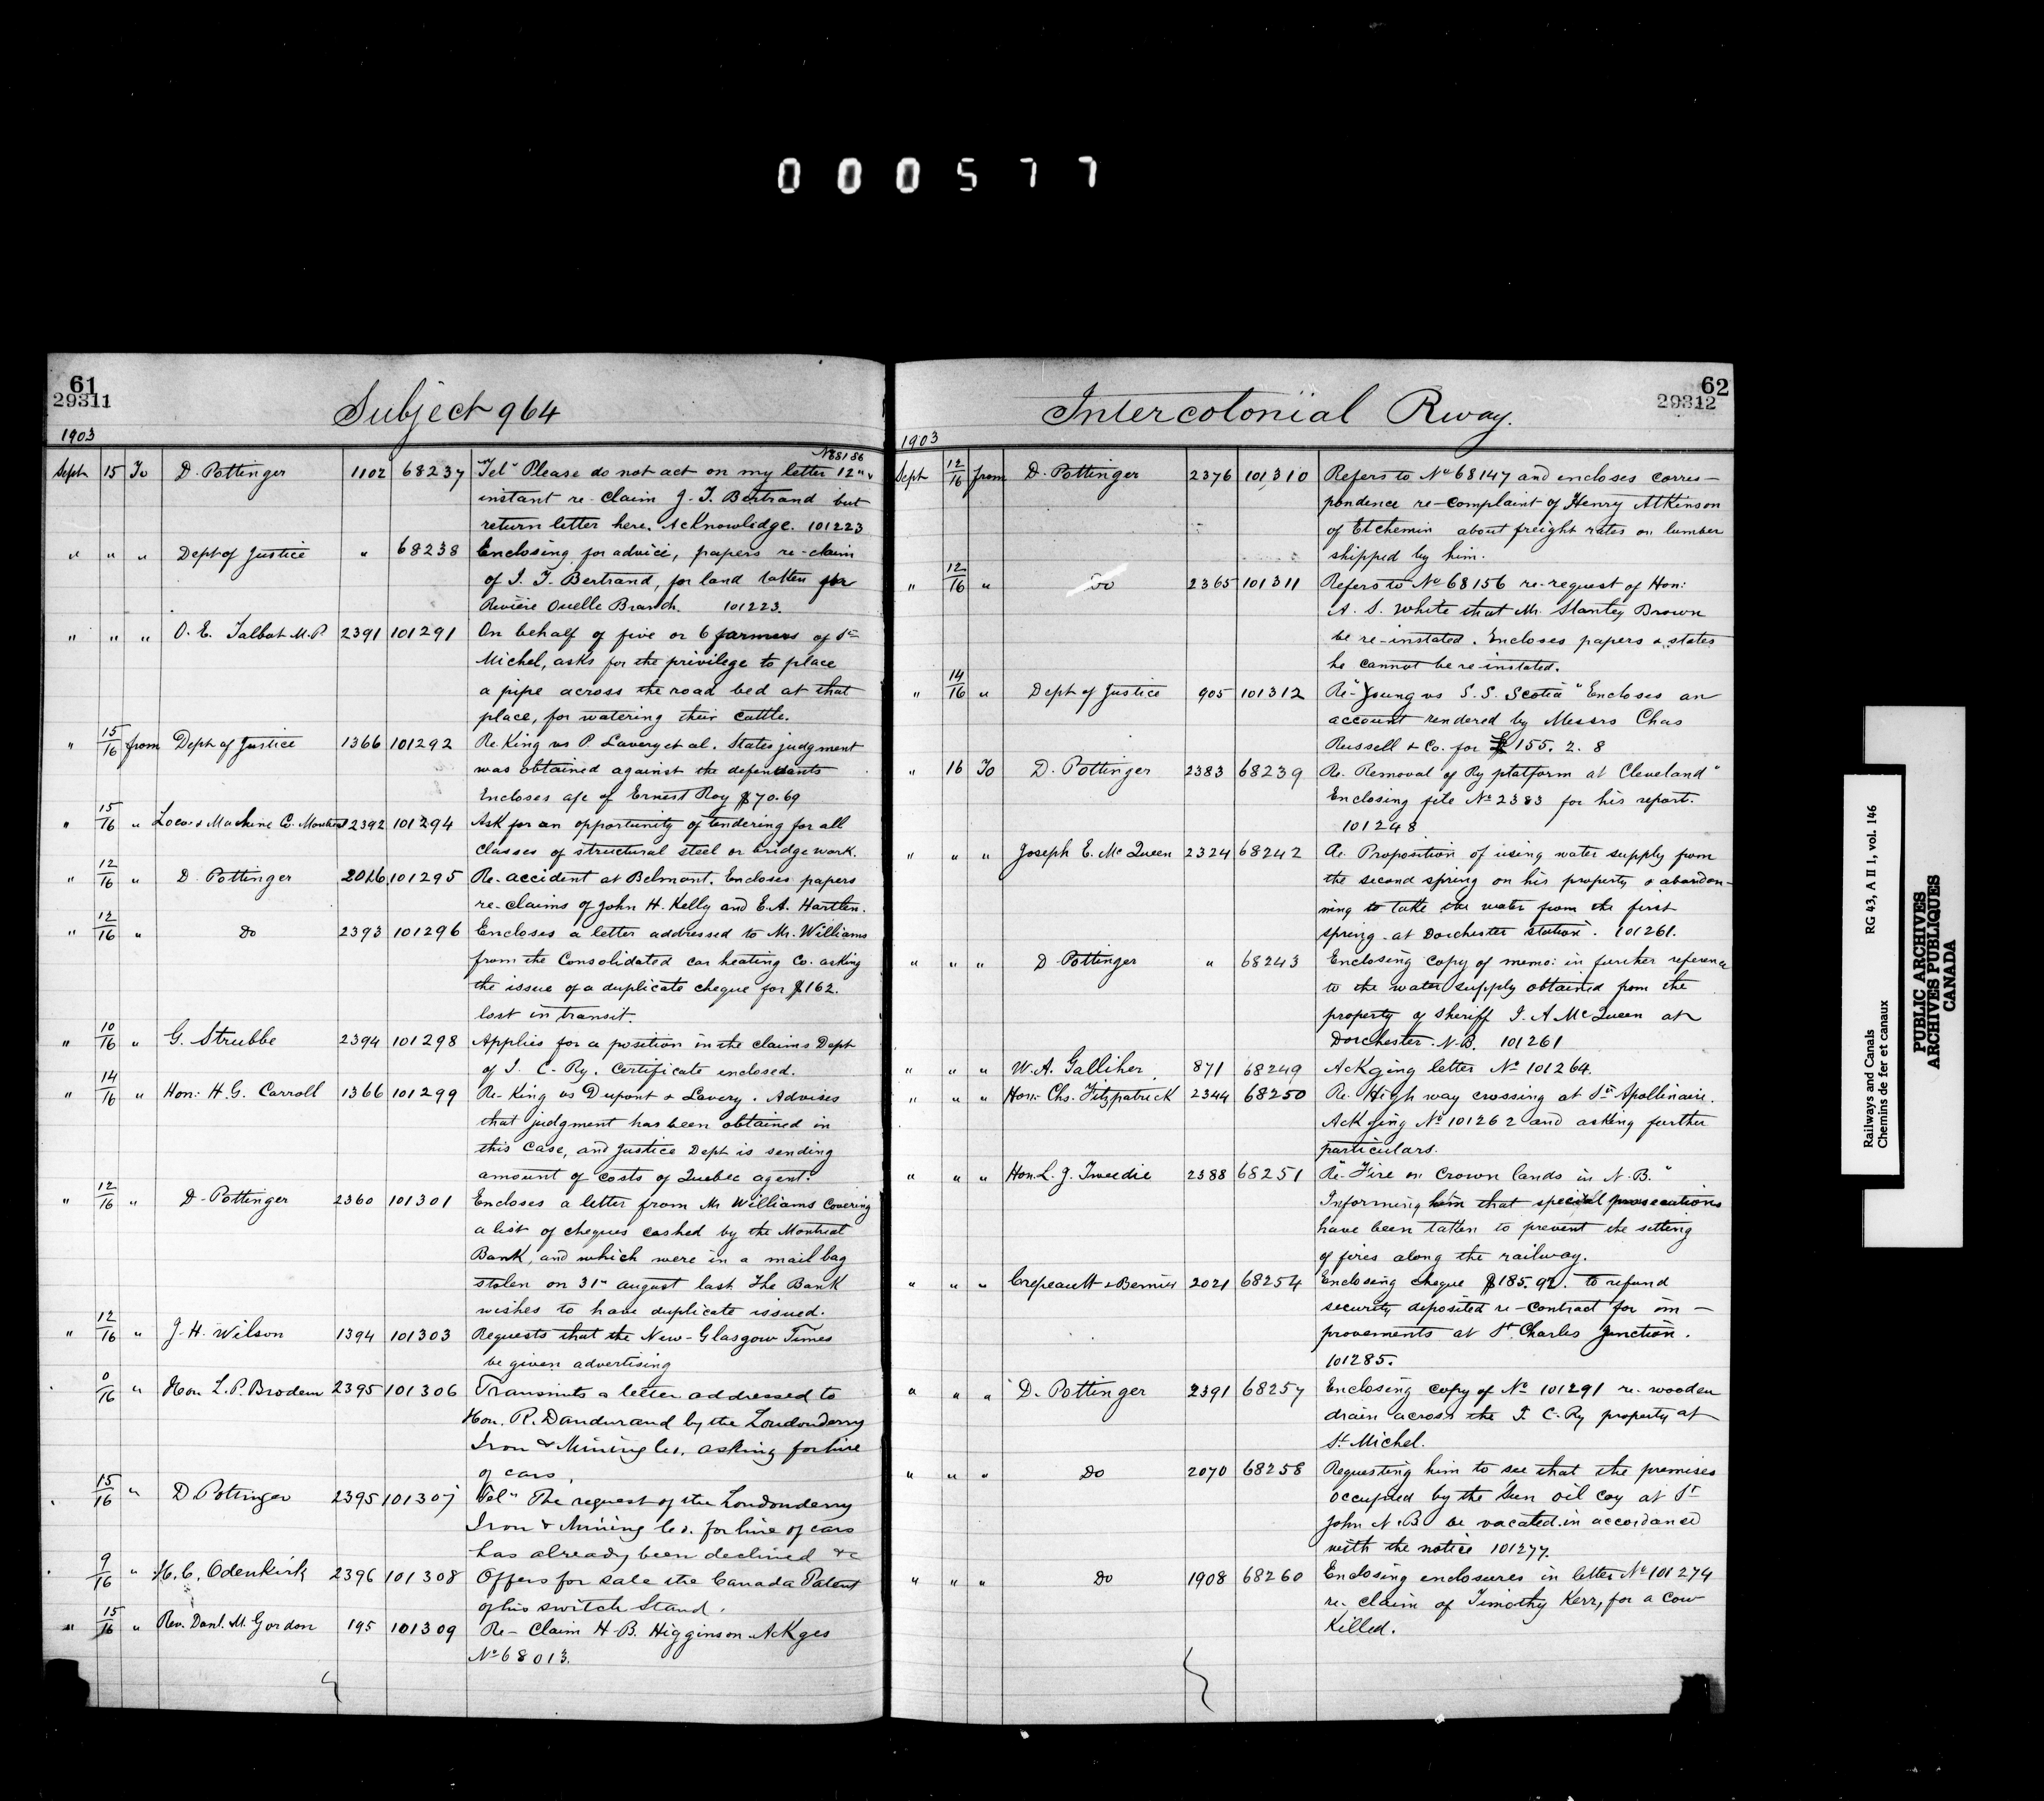 000577
61
29311
Subject 964
1903
Sept 15 To D. Pottinger 1102 68237 Tel" Please do not act on my letter 12"
No 68186
instant re-claim J. T. Bertrand but
return letter here. Acknowledge. 101223
" " " Dept of Justice " 68238 Enclosing for advice, papers re-claim
of J. T. Bertrand, for land taken for
Rivière Ouelle Branch. 101223.
" " " O. E. Talbot M.P. 2391 101291 On behalf of five or 6 farmers of St
Michel, asks for the privilege to place
a pipe across the road bed at that
place, for watering their cattle.
" 15/16 from Dept of Justice 1366 101292 Re. King vs P. Lavery et al. States judgment
was obtained against the defendants
Encloses a/c of Ernest Roy $70.69
" 15/16 " Loco. & Machine Co. Montreal 2392 101294 Ask for an opportunity of tendering for all
classes of structural steel or bridge work.
" 12/16 " D. Pottinger 2016 101295 Re-accident at Belmont. Encloses papers
re-claims of John H. Kelly and E.A. Hartlen.
" 12/16 " Do 2393 101296 Encloses a letter addressed to Mr. Williams
from the Consolidated car heating Co. asking
the issue of a duplicate cheque for $162.
lost in transit.
" 10/16 " G. Strubbe 2394 101298 Applies for a position in the claims Dept
of I. C. Ry. Certificate enclosed.
" 14/16 " Hon: H. G. Carroll 1366 101299 Re-King vs Dupont & Lavery. Advises
that judgment has been obtained in
this case, and Justice Dept is sending
amount of costs of Quebec agent.
" 12/16 " D. Pottinger 2360 101301 Encloses a letter from Mr Williams covering
a list of cheques cashed by the Montreal
Bank, and which were in a mail bag
stolen on 31st August last. The Bank
wishes to have duplicate issued.
" 12/16 " J. H. Wilson 1394 101303 Requests that the New-Glasgow Times
be given advertising
0/16 " Hon L. P. Brodeur 2395 101306 Transmits a letter addressed to
Hon. R. Dandurand by the Londonderry
Iron & Mining Co. asking for hire
of cars.
15/16 " D. Pottinger 2395 101307 Tel" The request of the Londonderry
Iron & Mining Co. for hire of cars
has already been declined &c
9/16 " H. C. Odenkirk 2396 101308 Offers for sale the Canada Patent
of his switch stand.
" 15/16 " Rev. Danl. M. Gordon 195 101309 Re-Claim H. B. Higginson Ackges
No 68013.
62
29312
Intercolonial Rway.
1903
Sept 12/16 from D. Pottinger 2376 101310 Refers to No 68147 and encloses corres-
pondence re-complaint of Henry Atkinson
of Etchemin about freight rates on lumber
shipped by him.
" 12/16 " Do 2365 101311 Refers to No 68156 re-request of Hon:
A. S. White that Mr. Stanley Brown
be re-instated. Encloses papers & states
he cannot be re-instated.
" 14/16 " Dept of Justice 905 101312 Re-"Young vs S.S. Scotia" Encloses an
account rendered by Messrs Chas
Russell & Co. for £155. 2. 8
" 16 To D. Pottinger 2383 68239 Re. Removal of Ry platform at Cleveland"
Enclosing file No 2383 for his report.
101248
" " " Joseph E. McQueen 2324 68242 Re. Proposition of using water supply from
the second spring on his property & abandon-
ning to take the water from the first
spring at Dorchester station. 101261.
" " " D. Pottinger " 68243 Enclosing copy of memo: in further reference
to the water supply obtained from the
property of Sheriff J. A McQueen at
Dorchester. N.B. 101261
" " " W. A. Galliher 871 68249 Ackging letter No 101264.
" " " Hon: Chs. Fitzpatrick 2344 68250 Re. High way crossing at St Apollinaire.
Ackging No 101262 and asking further
particulars.
" " " Hon. L. J. Tweedie 2388 68251 Re-"Fire on Crown lands in N.B."
Informing him that special prosecutions
have been taken to prevent the setting
of fires along the railway.
" " " Crepeault & Bernier 2021 68254 Enclosing cheque $185.92. to refund
security deposited re-contract for im-
provements at St. Charles Junction.
101285.
" " " D. Pottinger 2391 68257 Enclosing copy of No 101291 re. wooden
drain across the I. C. Ry property at
St. Michel.
" " " Do 2070 68258 Requesting him to see that the premises
occupied by the Sun oil coy at St
John N.B. be vacated in accordance
with the notice 101277.
" " " Do 1908 68260 Enclosing enclosures in letter No 101274
re-claim of Timothy Kerr, for a cow
killed.
Railways and Canals RG 43, A II 1, vol. 146
Chemins de fer et canaux
PUBLIC ARCHIVES
ARCHIVES PUBLIQUES
CANADA